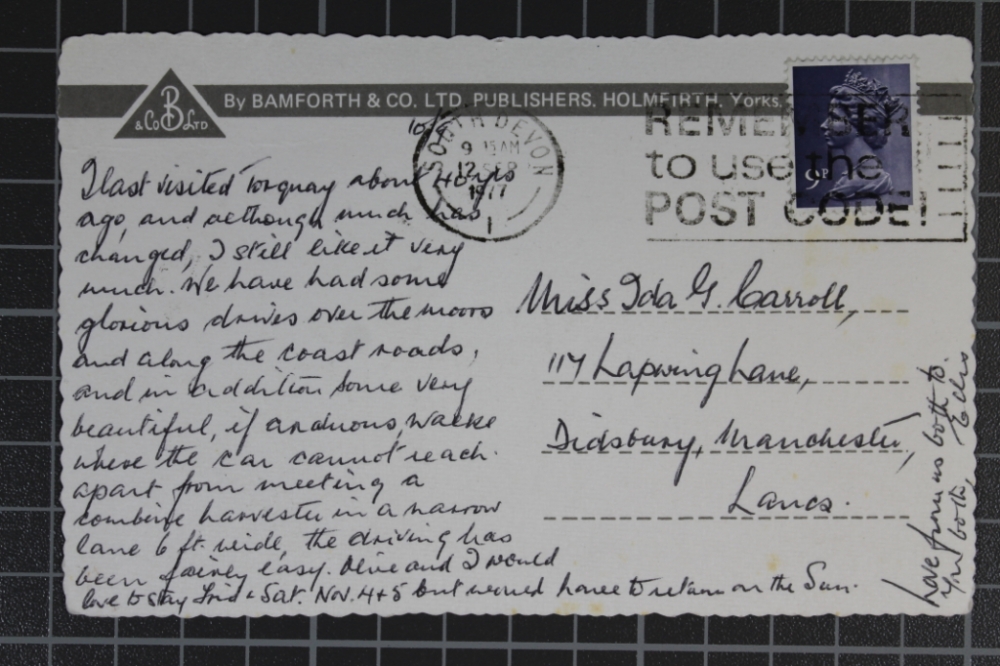 B
& Co LTD
By BAMFORTH & CO. LTD. PUBLISHERS. HOLMFIRTH, Yorks.
SOUTH DEVON
9 15 AM
12 SEP
1977
1
REMEMBER
to use the
POST CODE!
9P
I last visited Torquay about 40 yrs
ago, and although much has
changed, I still like it very
much. We have had some
glorious drives over the moors
and along the coast roads,
and in addition some very
beautiful, if arduous, walks
where the car cannot reach.
apart from meeting a
combine harvester in a narrow
lane 6 ft. wide, the driving has
been fairly easy. Olive and I would
love to stay Frid & Sat. Nov. 4+5 but would have to return on the Sun.
Love from us both to
you both,
Miss Ida G. Carroll,
117 Lapwing Lane,
Didsbury, Manchester,
Lancs.